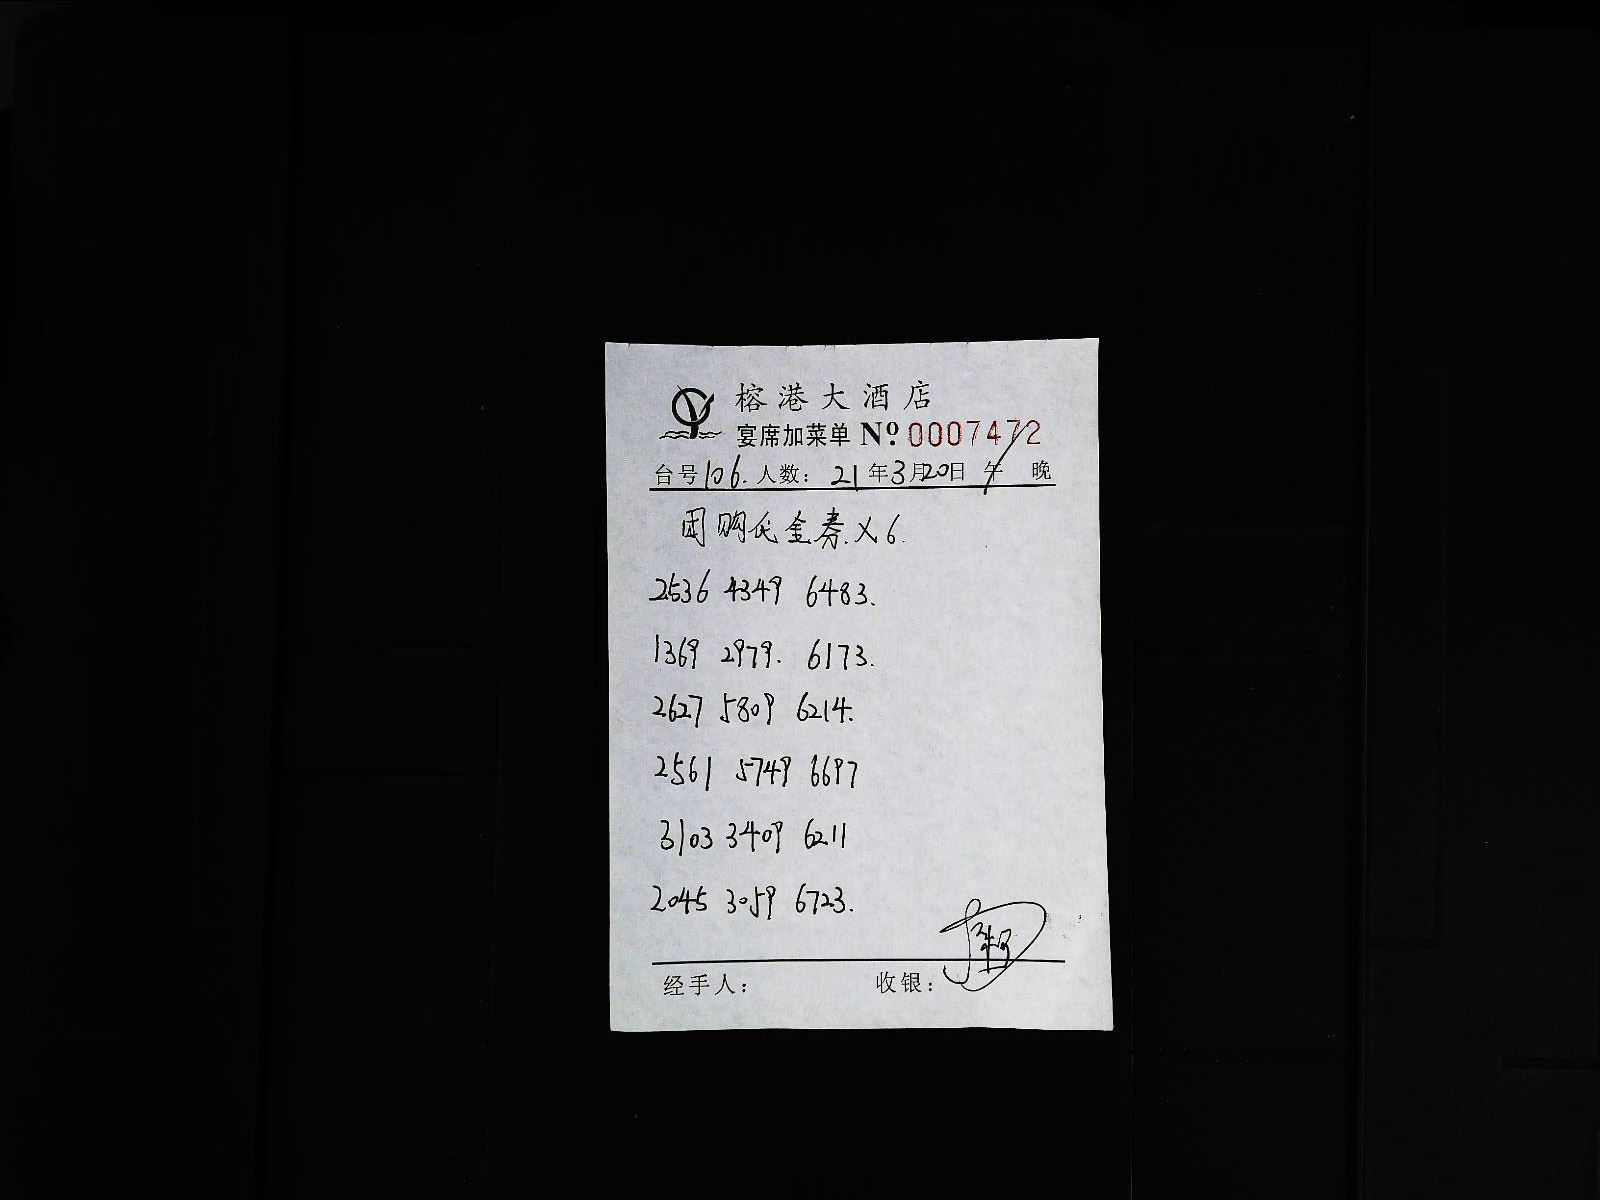 榕港大酒店
宴席加菜单 Nº 0007472
台号106. 人数: 21年3月20日 午 晚
团购代金券.X6.
2536 4349 6483.
1369 2979. 6173.
2627 5809 6214.
2561 5749 6697
3103 3409 6211
2045 3059 6723.
经手人: 收银: